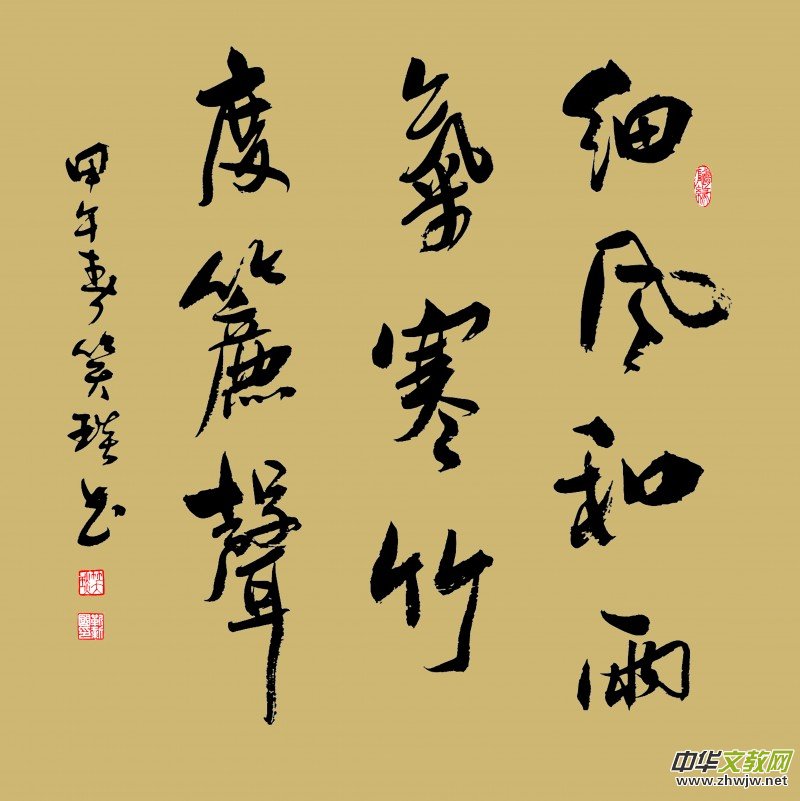 细风和雨
氣寒竹
度簏聲
甲午春笑琰书
中华文教网
www.zhwjw.net